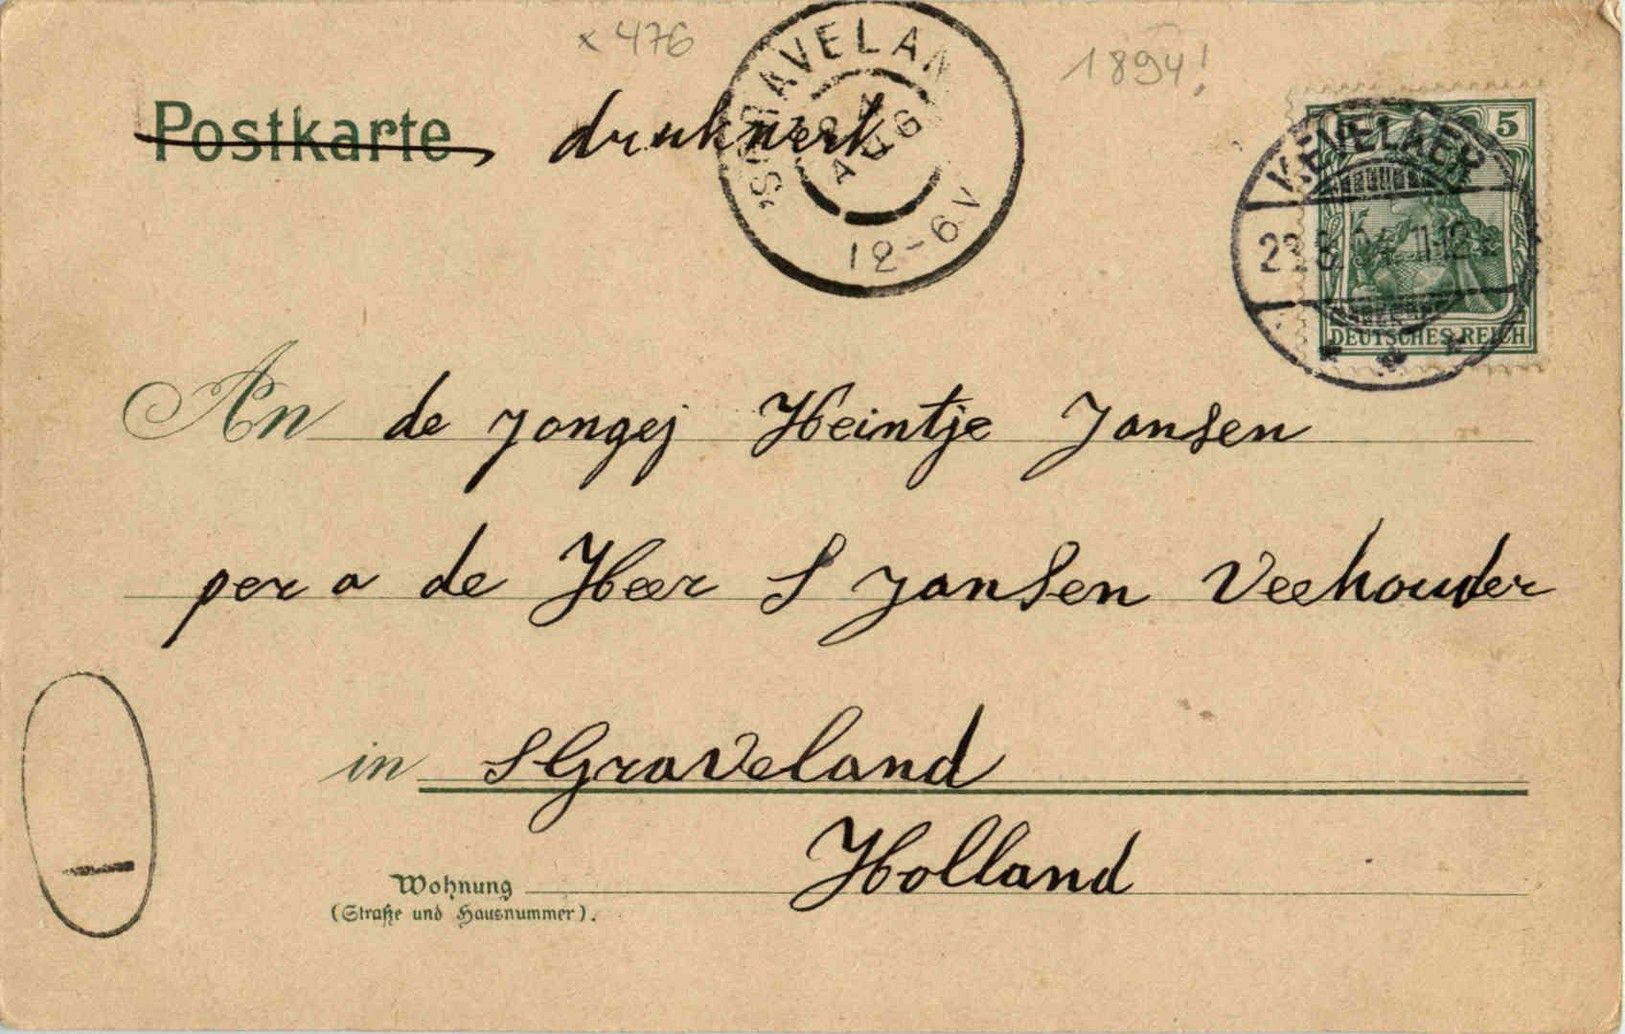 x 476
1894!
'S GRAVELAN
AUG
12-6V
Postkarte drukwerk
5
KEVELAER
11-12
DEUTSCHES REICH
An de jongej Heintje Jansen
per a de Heer S Jansen Veehouder
in SGraveland
Holland
Wohnung
(Straße und Hausnummer).